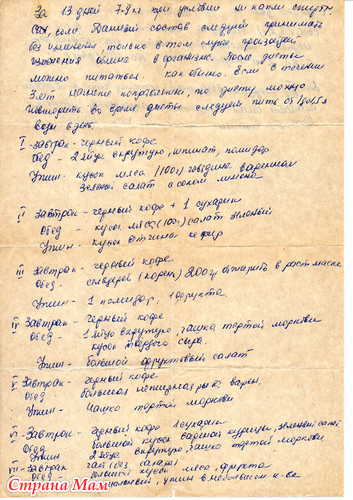 За 13 дней 7-8 кг при условии ни капли спирта
соли. Данный состав следует принимать
без изменений, только в том случае произойдет
изменения обмена в организме. После диеты
можно питаться как обычно. Если в течении
лет начнете поправляться, то диету можно
повторить во время диеты следует пить от 1 до 1,5 л
воды в день.
I завтрак - черный кофе
Обед - 2 яйца вкрутую, шпинат, помидор
Ужин - кусок мяса (100г) говядина вареная
зеленый салат с соком лимона
II Завтрак - черный кофе + 1 сухарик
Обед - кусок мяса (100г) салат зеленый
Ужин - кусок ветчины кефир
III Завтрак - черный кофе
Обед - сельдерей (корень) 200 г обжарить в раст масле
Ужин - 1 помидор, 1 фрукт
IV Завтрак - черный кофе
Обед - 1 яйцо вкрутую, чашка тертой моркови
кусок твердого сыра.
Ужин - большой фруктовый салат
V Завтрак - черный кофе
Обед - большая рыба варен.
Ужин - чашка тертой моркови
VI Завтрак - черный кофе 1 сухарик
Обед большой кусок вареной курицы, зеленый салат
Ужин 2 яйца вкрутую, чашка тертой моркови
VII - Завтрак чай (без сахара)
кусок мяса, фрукты
, ужин в небольшом к-ве
Страна Мам